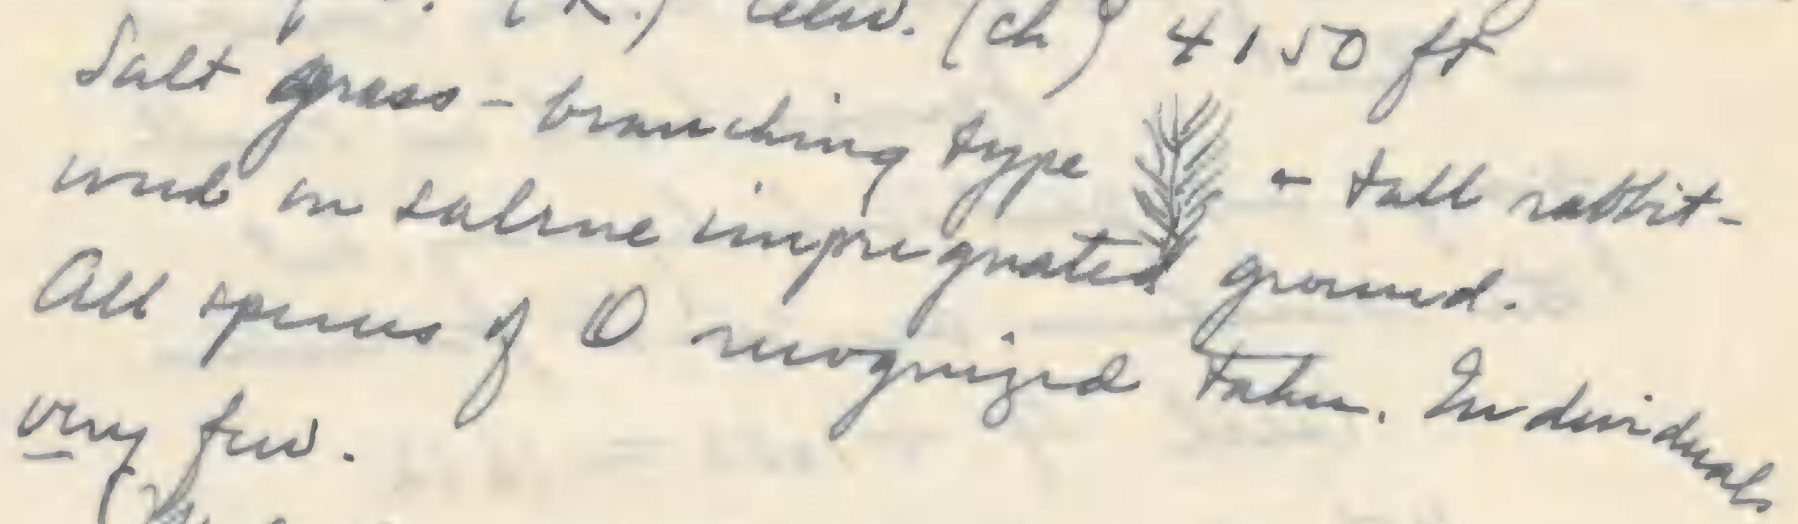 (R.) elev. (ch) 4150 ft
Salt grass – branching type - tall rabbit-
weed in saline impregnated ground.
All species of O recognized taken. Individuals
very few.